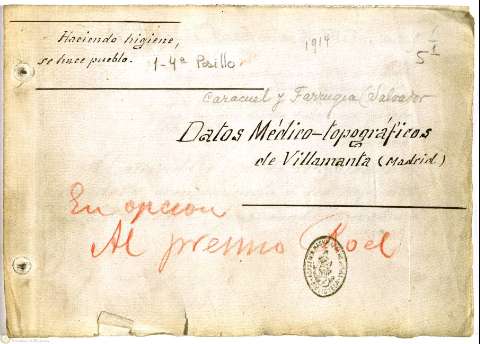 Haciendo higiene,
se hace pueblo.
1-4ª Pasillo
1914
5
Caracuel y Farrugia (Salvador
Datos Médico-topográficos
de Villamanta (Madrid)
En opción
Al premio Roel